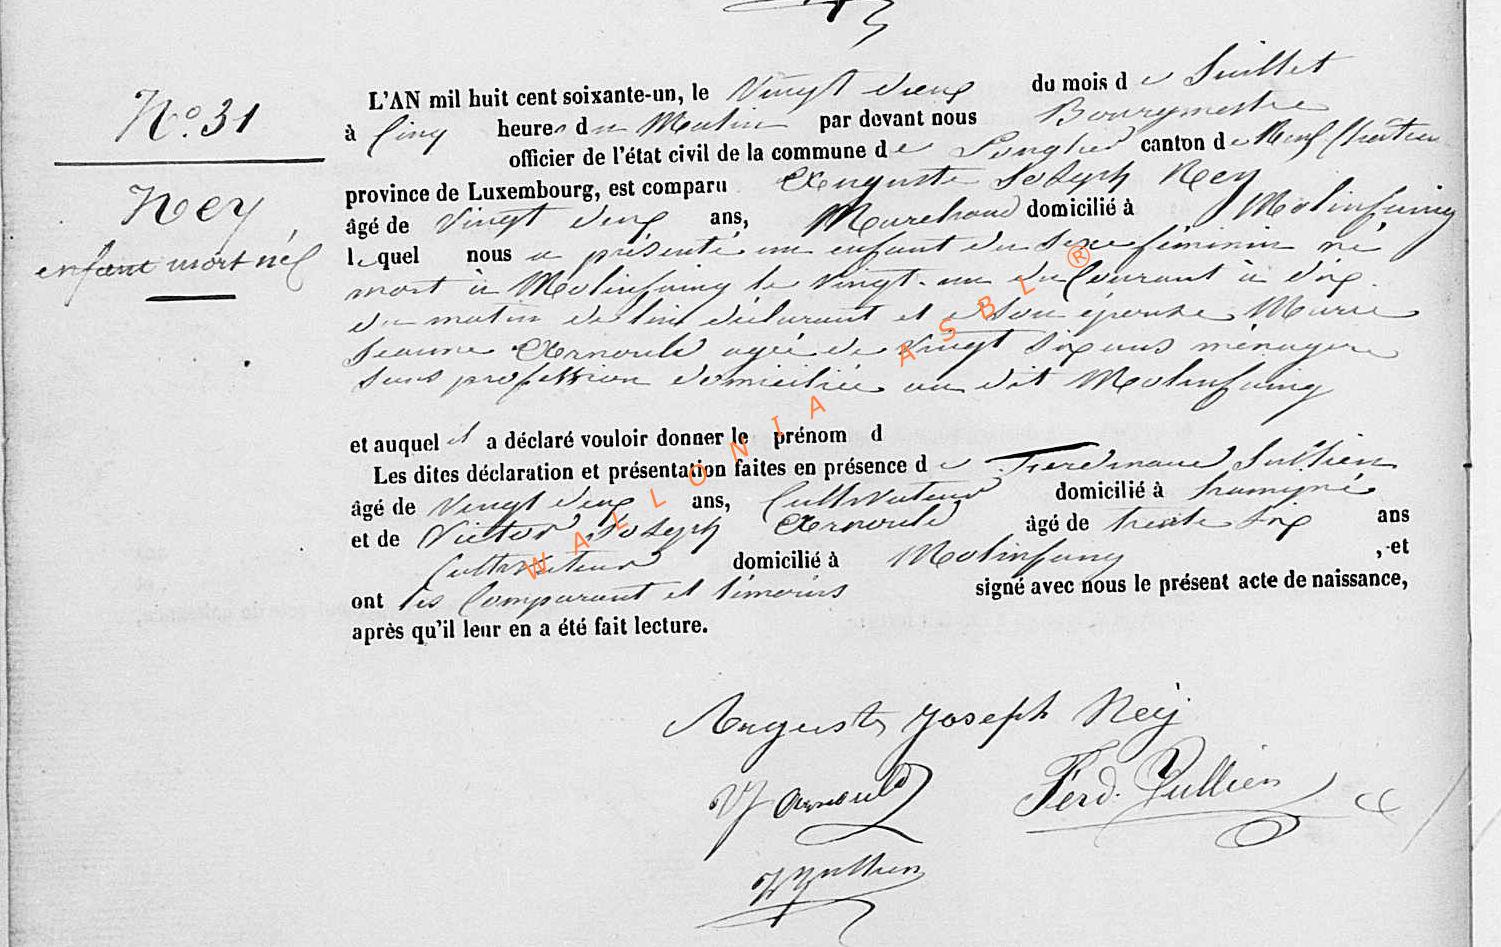 N.º 31
Ney
enfant mort né
L'AN mil huit cent soixante-un, le Vingt deux du mois de Juillet
à Cinq heures du Matin par devant nous Bourgmestre
officier de l'état civil de la commune de Longlier canton de Neufchateau
province de Luxembourg, est comparu Auguste Joseph Ney
âgé de Vingt deux ans, Marchand domicilié à Molinfaing
lequel nous a présenté un enfant du sexe féminin né
mort à Molinfaing le vingt-un du Courant à dix
du matin de lui déclarant et de Son épouse Marie
Jeanne Arnould agée de Vingt Six ans ménagere
Sans profession domiciliée au dit Molinfaing
et auquel il a déclaré vouloir donner le prénom d
Les dites déclaration et présentation faites en présence de Ferdinand Jullien
âgé de Vingt deux ans, Cultivateur domicilié à Tramogné
et de Victor Joseph Arnould âgé de trente Six ans
Cultivateur domicilié à Molinfaing , et
ont les Comparant et témoins signé avec nous le présent acte de naissance,
après qu'il leur en a été fait lecture.
Auguste Joseph Neÿ
VJ Arnould Ferd. Jullien
H Jullien
WALLONIA ASBL ®